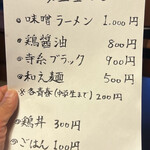 ◎味噌ラーメン 1.000円
◎鶏醤油 800円
◎寺系ブラック 900円
◎和え麺 500円
200円
◎鶏丼 300円
◎ごはん 100円